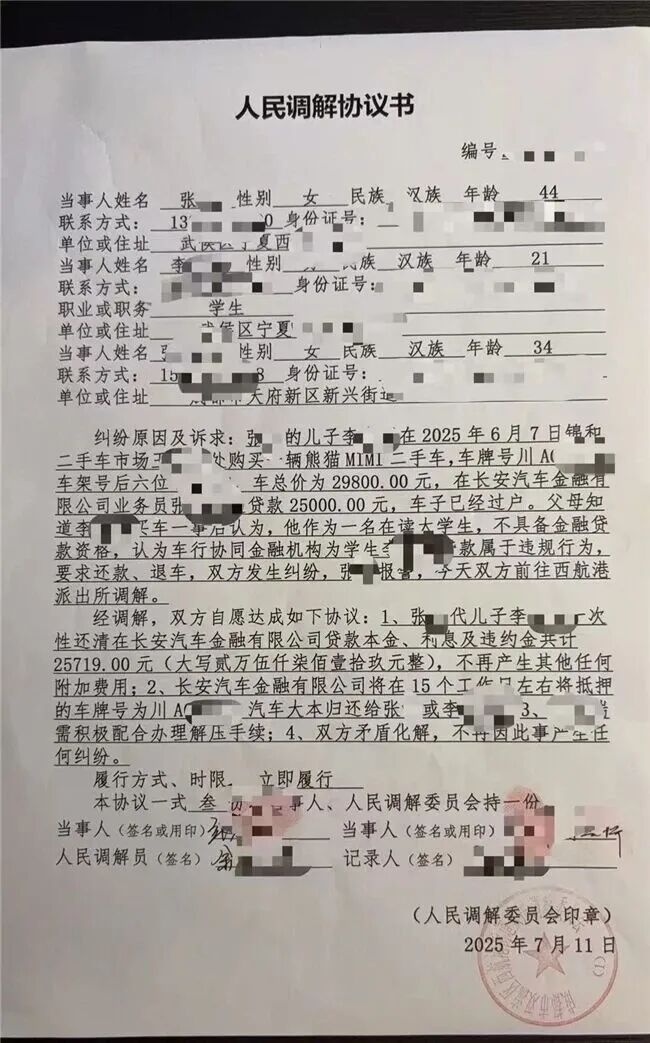 人民调解协议书
编号
当事人姓名 张 性别 女 民族 汉族 年龄 44
联系方式: 13 0 身份证号:
单位或住址 武侯区宁夏西
当事人姓名 李 性别 民族 汉族 年龄 21
联系方式: 身份证号:
职业或职务 学生
单位或住址 武侯区宁夏
当事人姓名 张 性别 女 民族 汉族 年龄 34
联系方式: 15 3 身份证号:
单位或住址 成都市天府新区新兴街道
纠纷原因及诉求: 张 的儿子李 在 2025 年 6 月 7 日锦和
二手车市场 处购买一辆熊猫 MIMI 二手车,车牌号川 A
车架号后六位 车总价为 29800.00 元,在长安汽车金融有
限公司业务员张 贷款 25000.00 元,车子已经过户。父母知
道李 买车一事后认为,他作为一名在读大学生,不具备金融贷
款资格,认为车行协同金融机构为学生 款属于违规行为,
要求还款、退车,双方发生纠纷,张 报警,今天双方前往西航港
派出所调解。
经调解,双方自愿达成如下协议:1、张 代儿子李 一次
性还清在长安汽车金融有限公司贷款本金、利息及违约金共计
25719.00 元(大写贰万伍仟柒佰壹拾玖元整),不再产生其他任何
附加费用;2、长安汽车金融有限公司将在 15 个工作日左右将抵押
的车牌号为川 A 汽车大本归还给张 或李 3、
需积极配合办理解压手续;4、双方矛盾化解,不再因此事产生任
何纠纷。
履行方式、时限 立即履行
本协议一式 叁 份 当事人、人民调解委员会持一份
当事人(签名或用印) 当事人(签名或用印)
人民调解员(签名) 记录人(签名)
(人民调解委员会印章)
2025 年 7 月 11 日
(1)